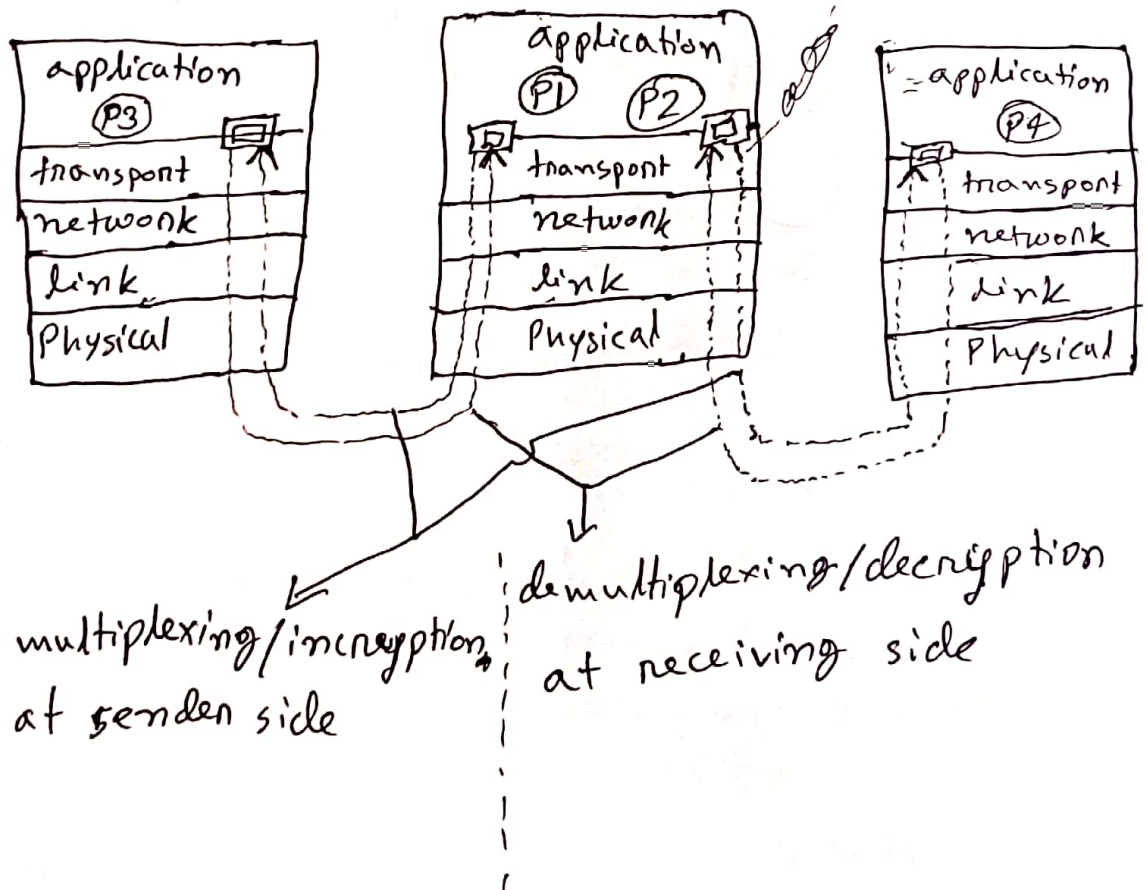 application
P3
transport
network
link
Physical
application
P1 P2
transport
network
link
Physical
application
P4
transport
network
link
Physical
multiplexing/incryption
at sender side
demultiplexing/decryption
at receiving side